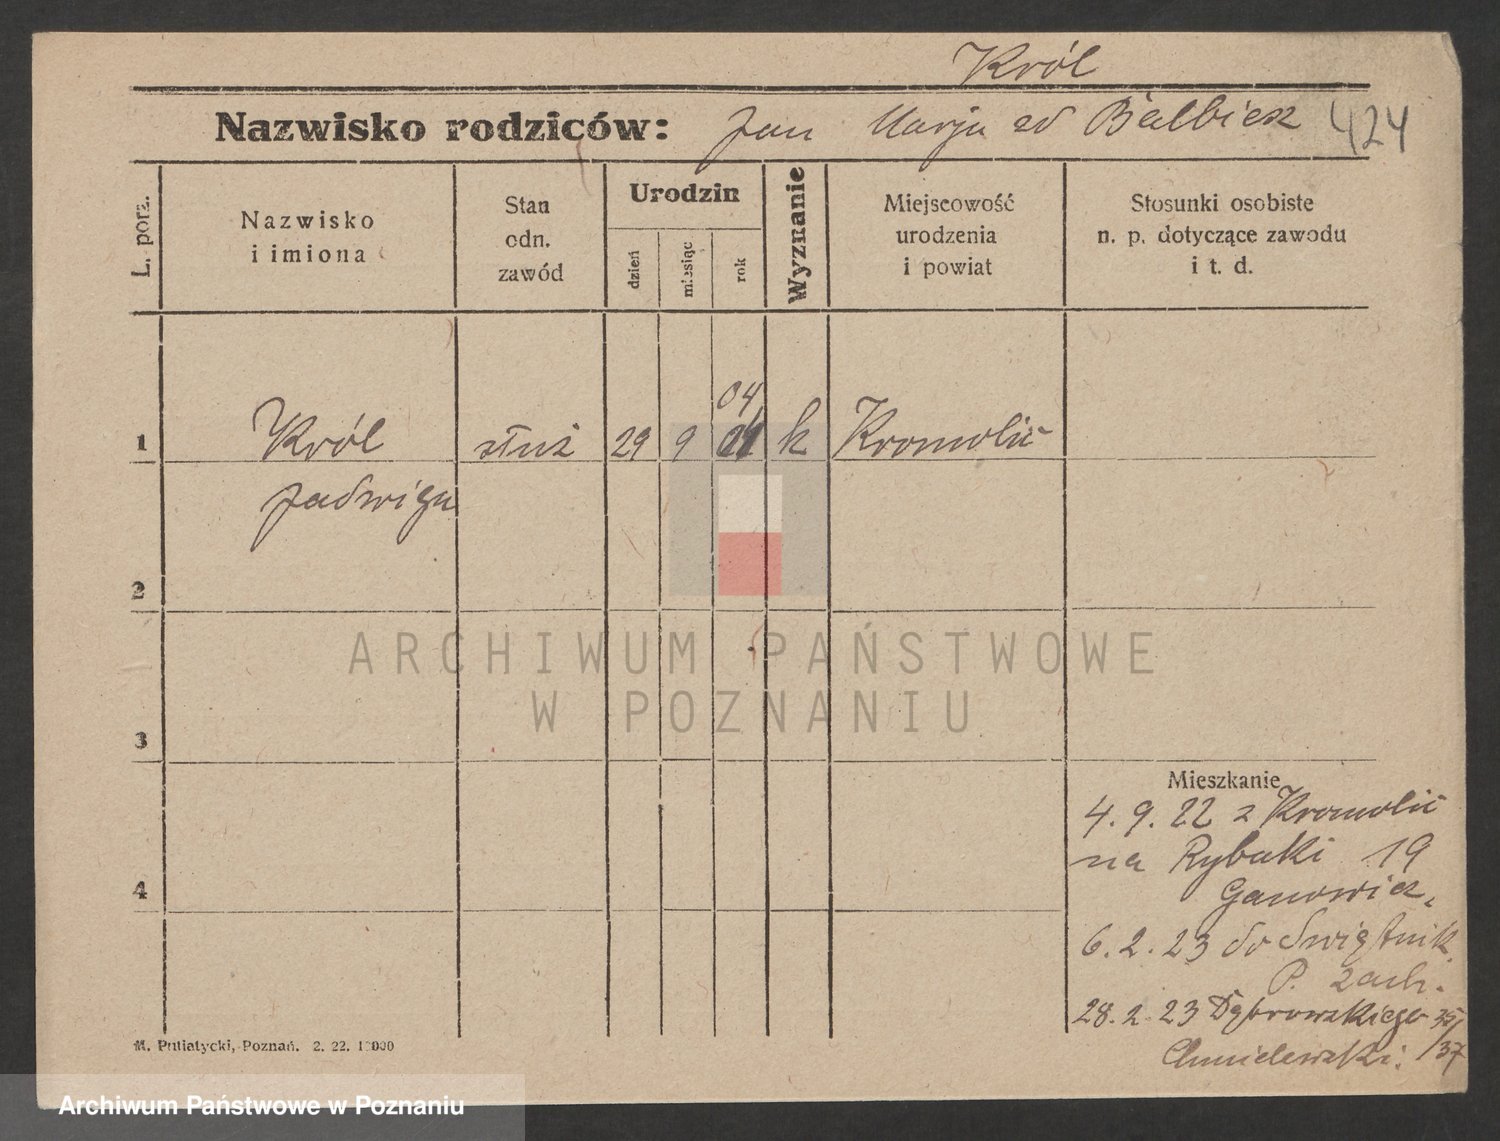 Król
Nazwisko rodziców: Jan Marja zd Balbierz 424
L. porz.
Nazwisko
i imiona
Stan
odn.
zawód
Urodzin
dzień
miesiąc
rok
Wyznanie
Miejscowość
urodzenia
i powiat
Stosunki osobiste
n. p. dotyczące zawodu
i t. d.
04
1 Król służ 29 9 k Kromolic
Jadwiga
2
ARCHIWUM PAŃSTWOWE
W POZNANIU
3
Mieszkanie
4. 9. 22 z Kromolic
na Rybaki 19
4
Ganowicz.
6. 2. 23 do Świątnik
P. zach.
28. 2. 23 Dąbrowskiego 35/37
Chmielewski.
M. Putiatycki, Poznań. 2. 22.
Archiwum Państwowe w Poznaniu